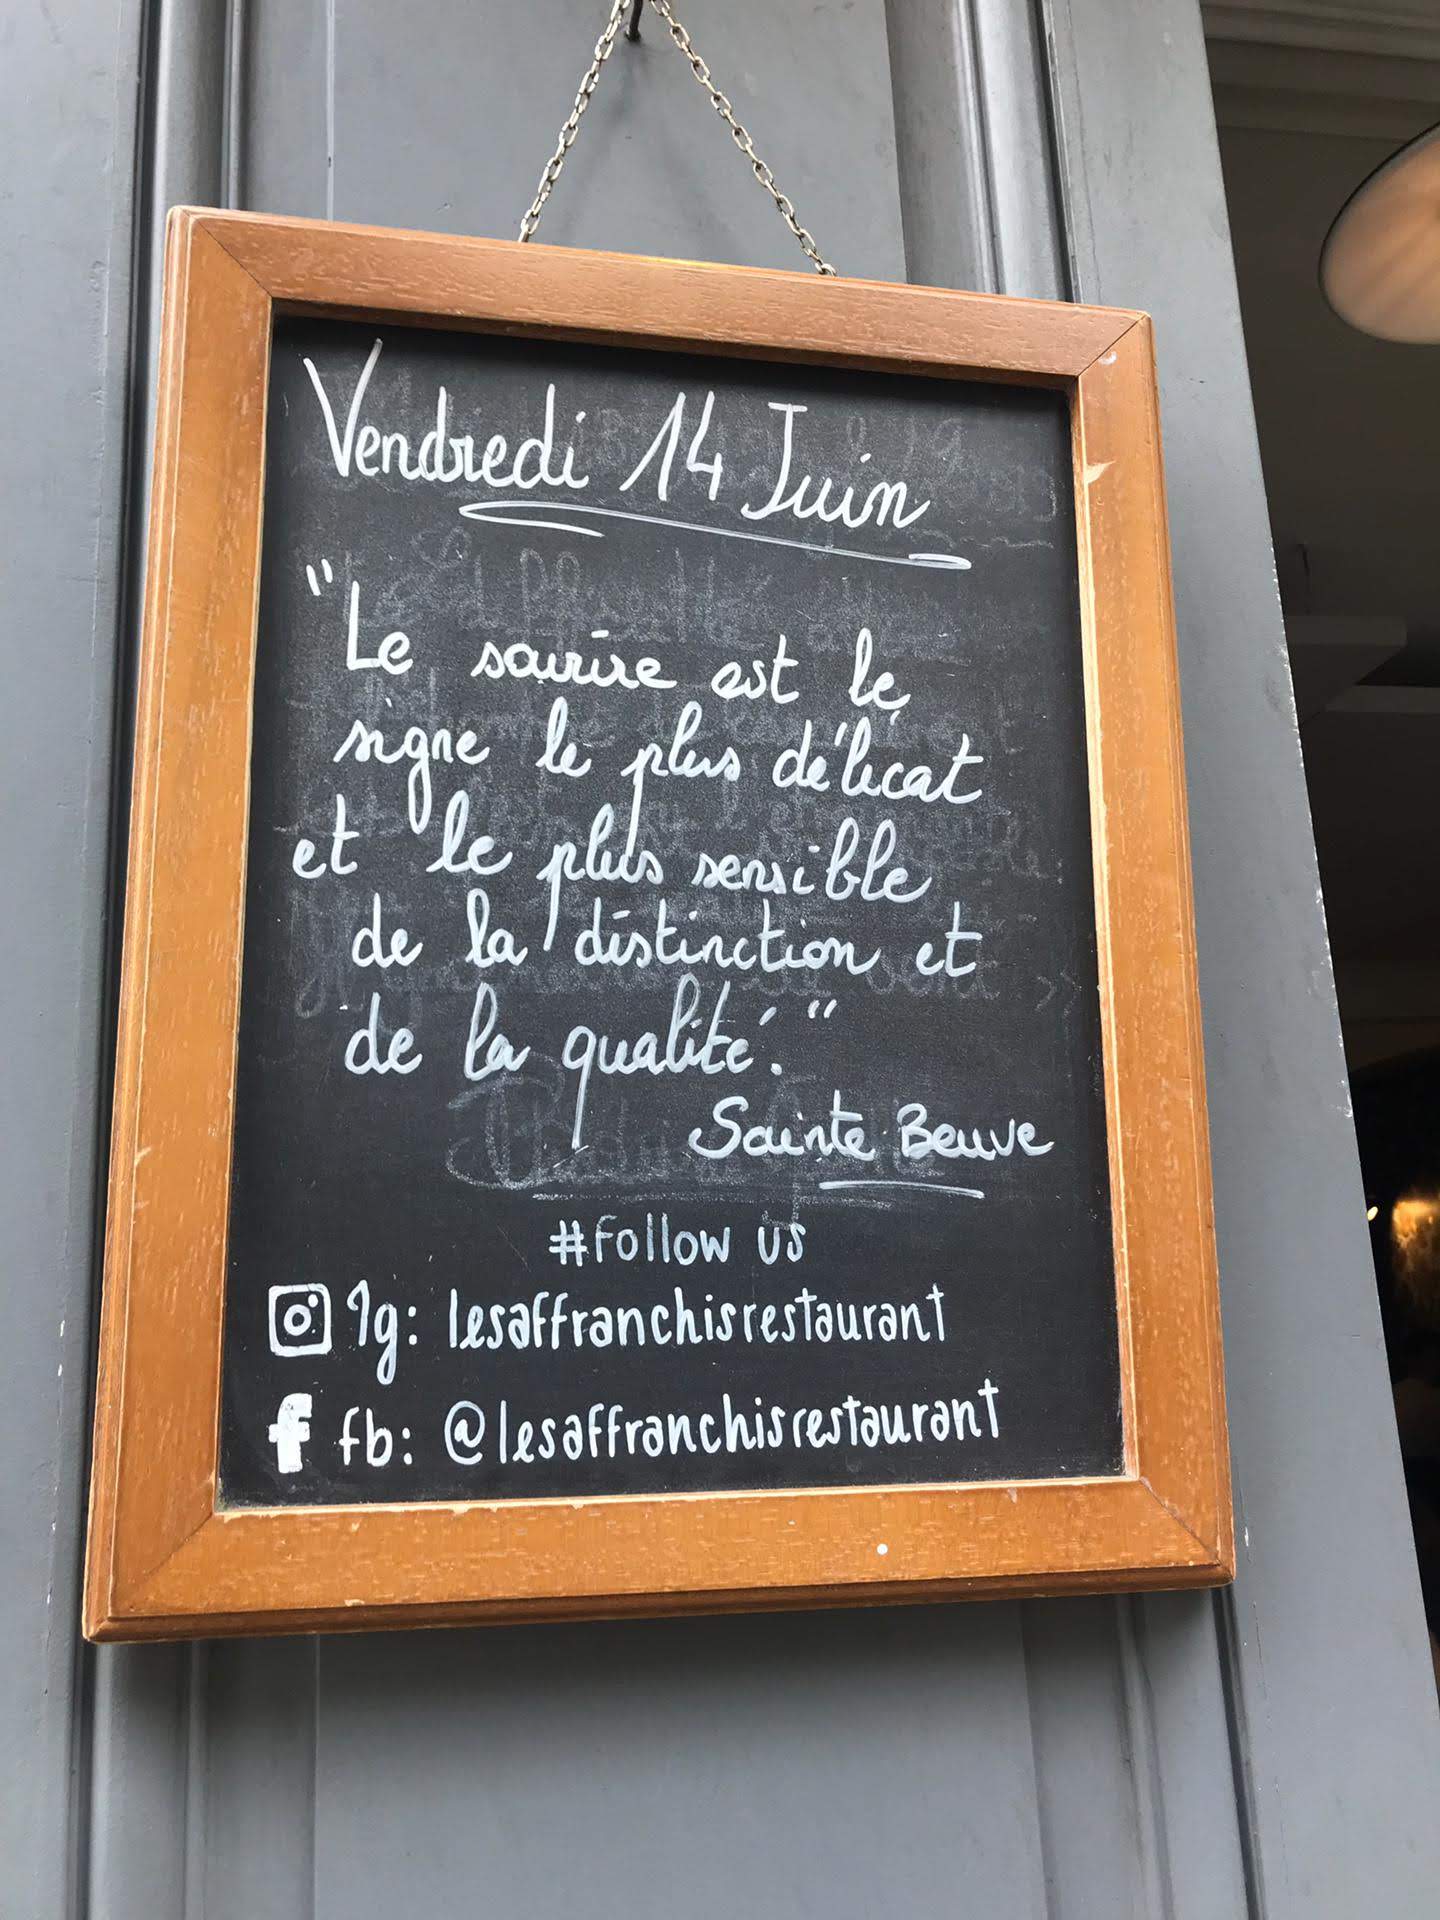 Vendredi 14 Juin
"Le sourire est le
signe le plus délicat
et le plus sensible
de la distinction et
de la qualité."
Sainte Beuve
#Follow us
Ig: lesaffranchisrestaurant
f fb: @lesaffranchisrestaurant